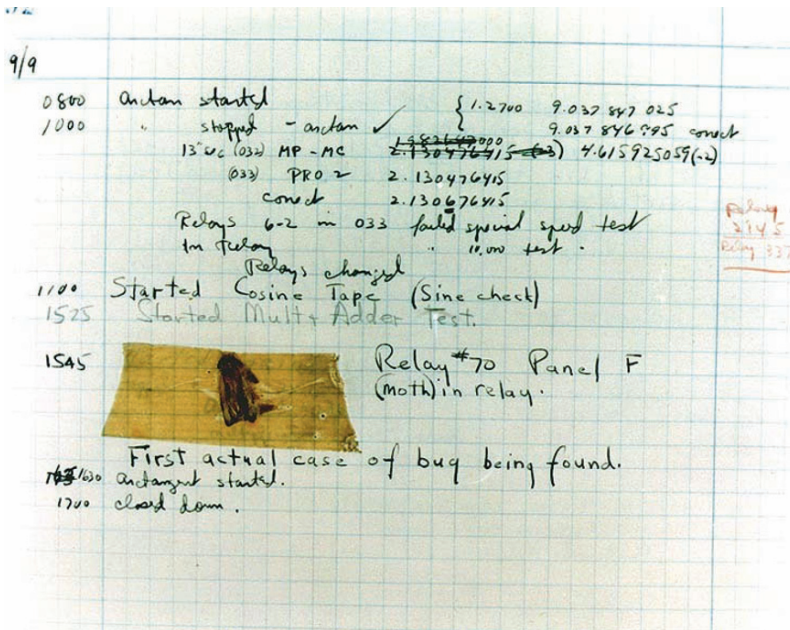 9/9
0800 Antan started
1000 " stopped - antan ✓ { 1.2700 9.037 847 025
9.037 846 795 conect
13"uc (032) MP - MC 2.130476415 (-3) 4.615925059(-2)
(033) PRO 2 2.130476415
conect 2.130676415
Relays 6-2 in 033 failed special speed test
In relay " 10,000 test .
Relays changed
1100 Started Cosine Tape (Sine check)
1525 Started Mult + Adder Test.
1545 Relay #70 Panel F
(moth) in relay.
First actual case of bug being found.
1630 antangent started.
1700 closed down .
Relay
Relay 337